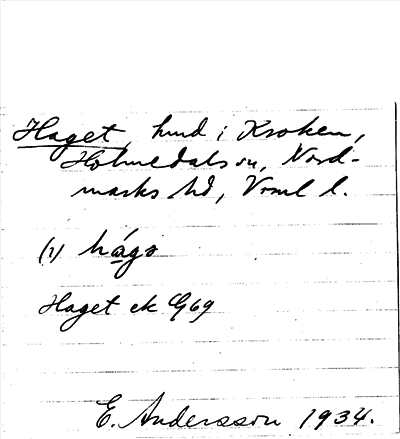 Haget, hmd i Kroken,
Holmedals sn, Nord-
marks hd, Vrml l.
(1) hága
Haget ek G69
E. Andersson 1934.